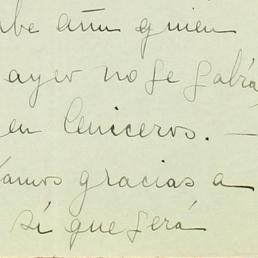 be aún quien
ayer no se sabía
en Ceniceros. —
amos gracias a
sí que será